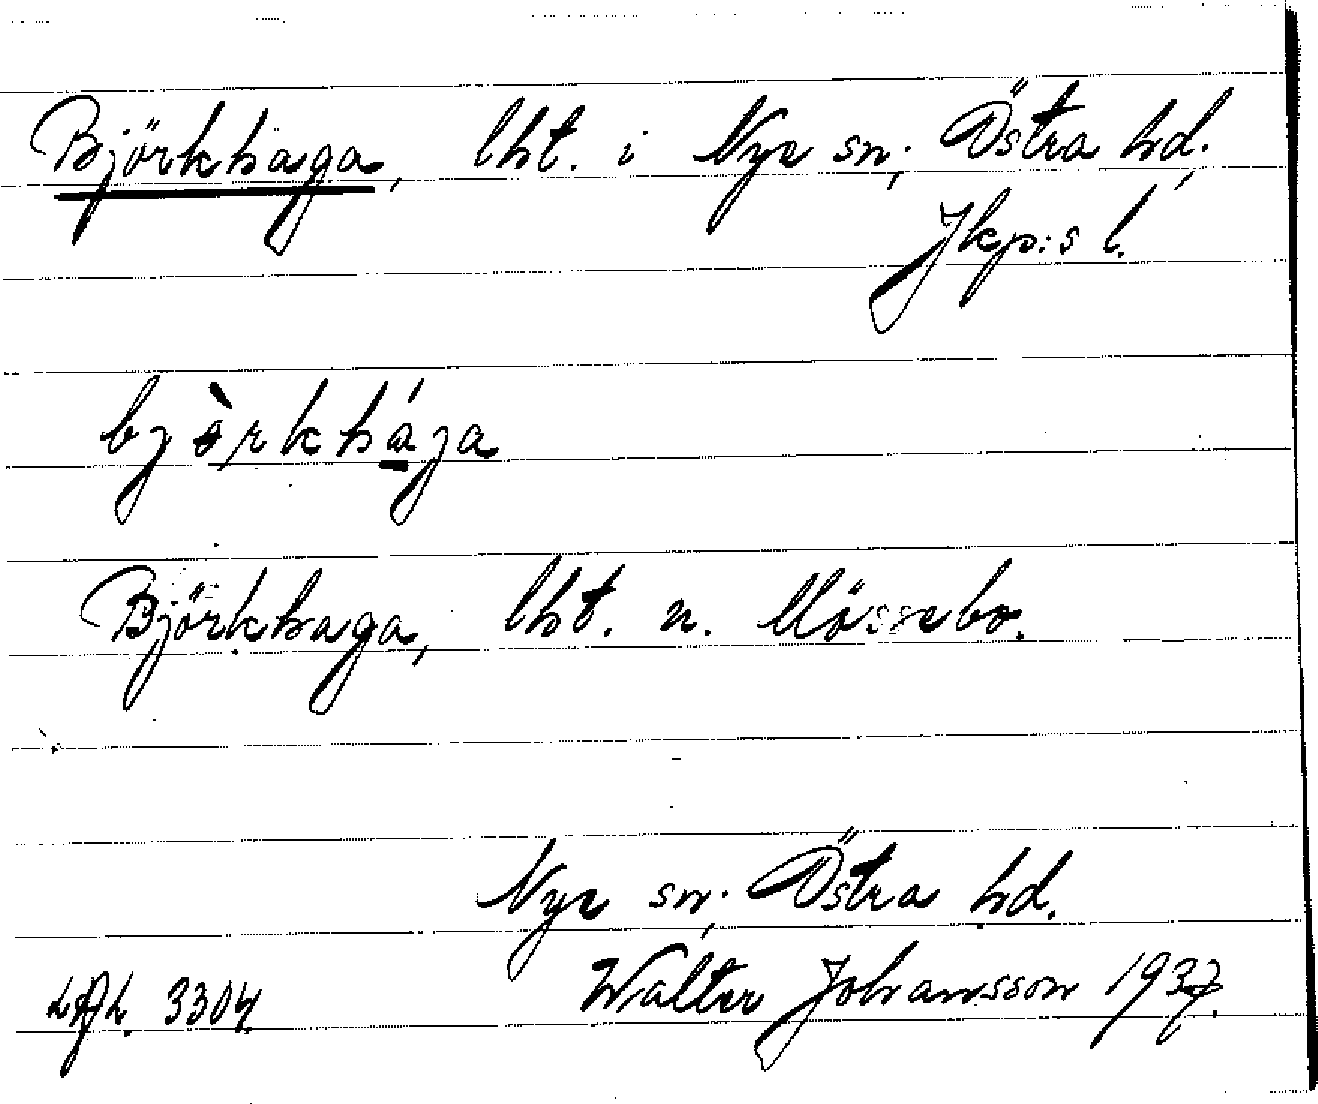 Björkhaga, lht. i Nye sn, Östra hd.,
Jkp:s l.
bjòrkhága
Björkhaga, lht. n. Mössebo.
Nye sn, Östra hd.
3304. Walter Johansson 1937.